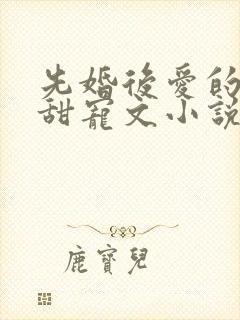 先婚後愛的
甜寵文小說
鹿寶兒